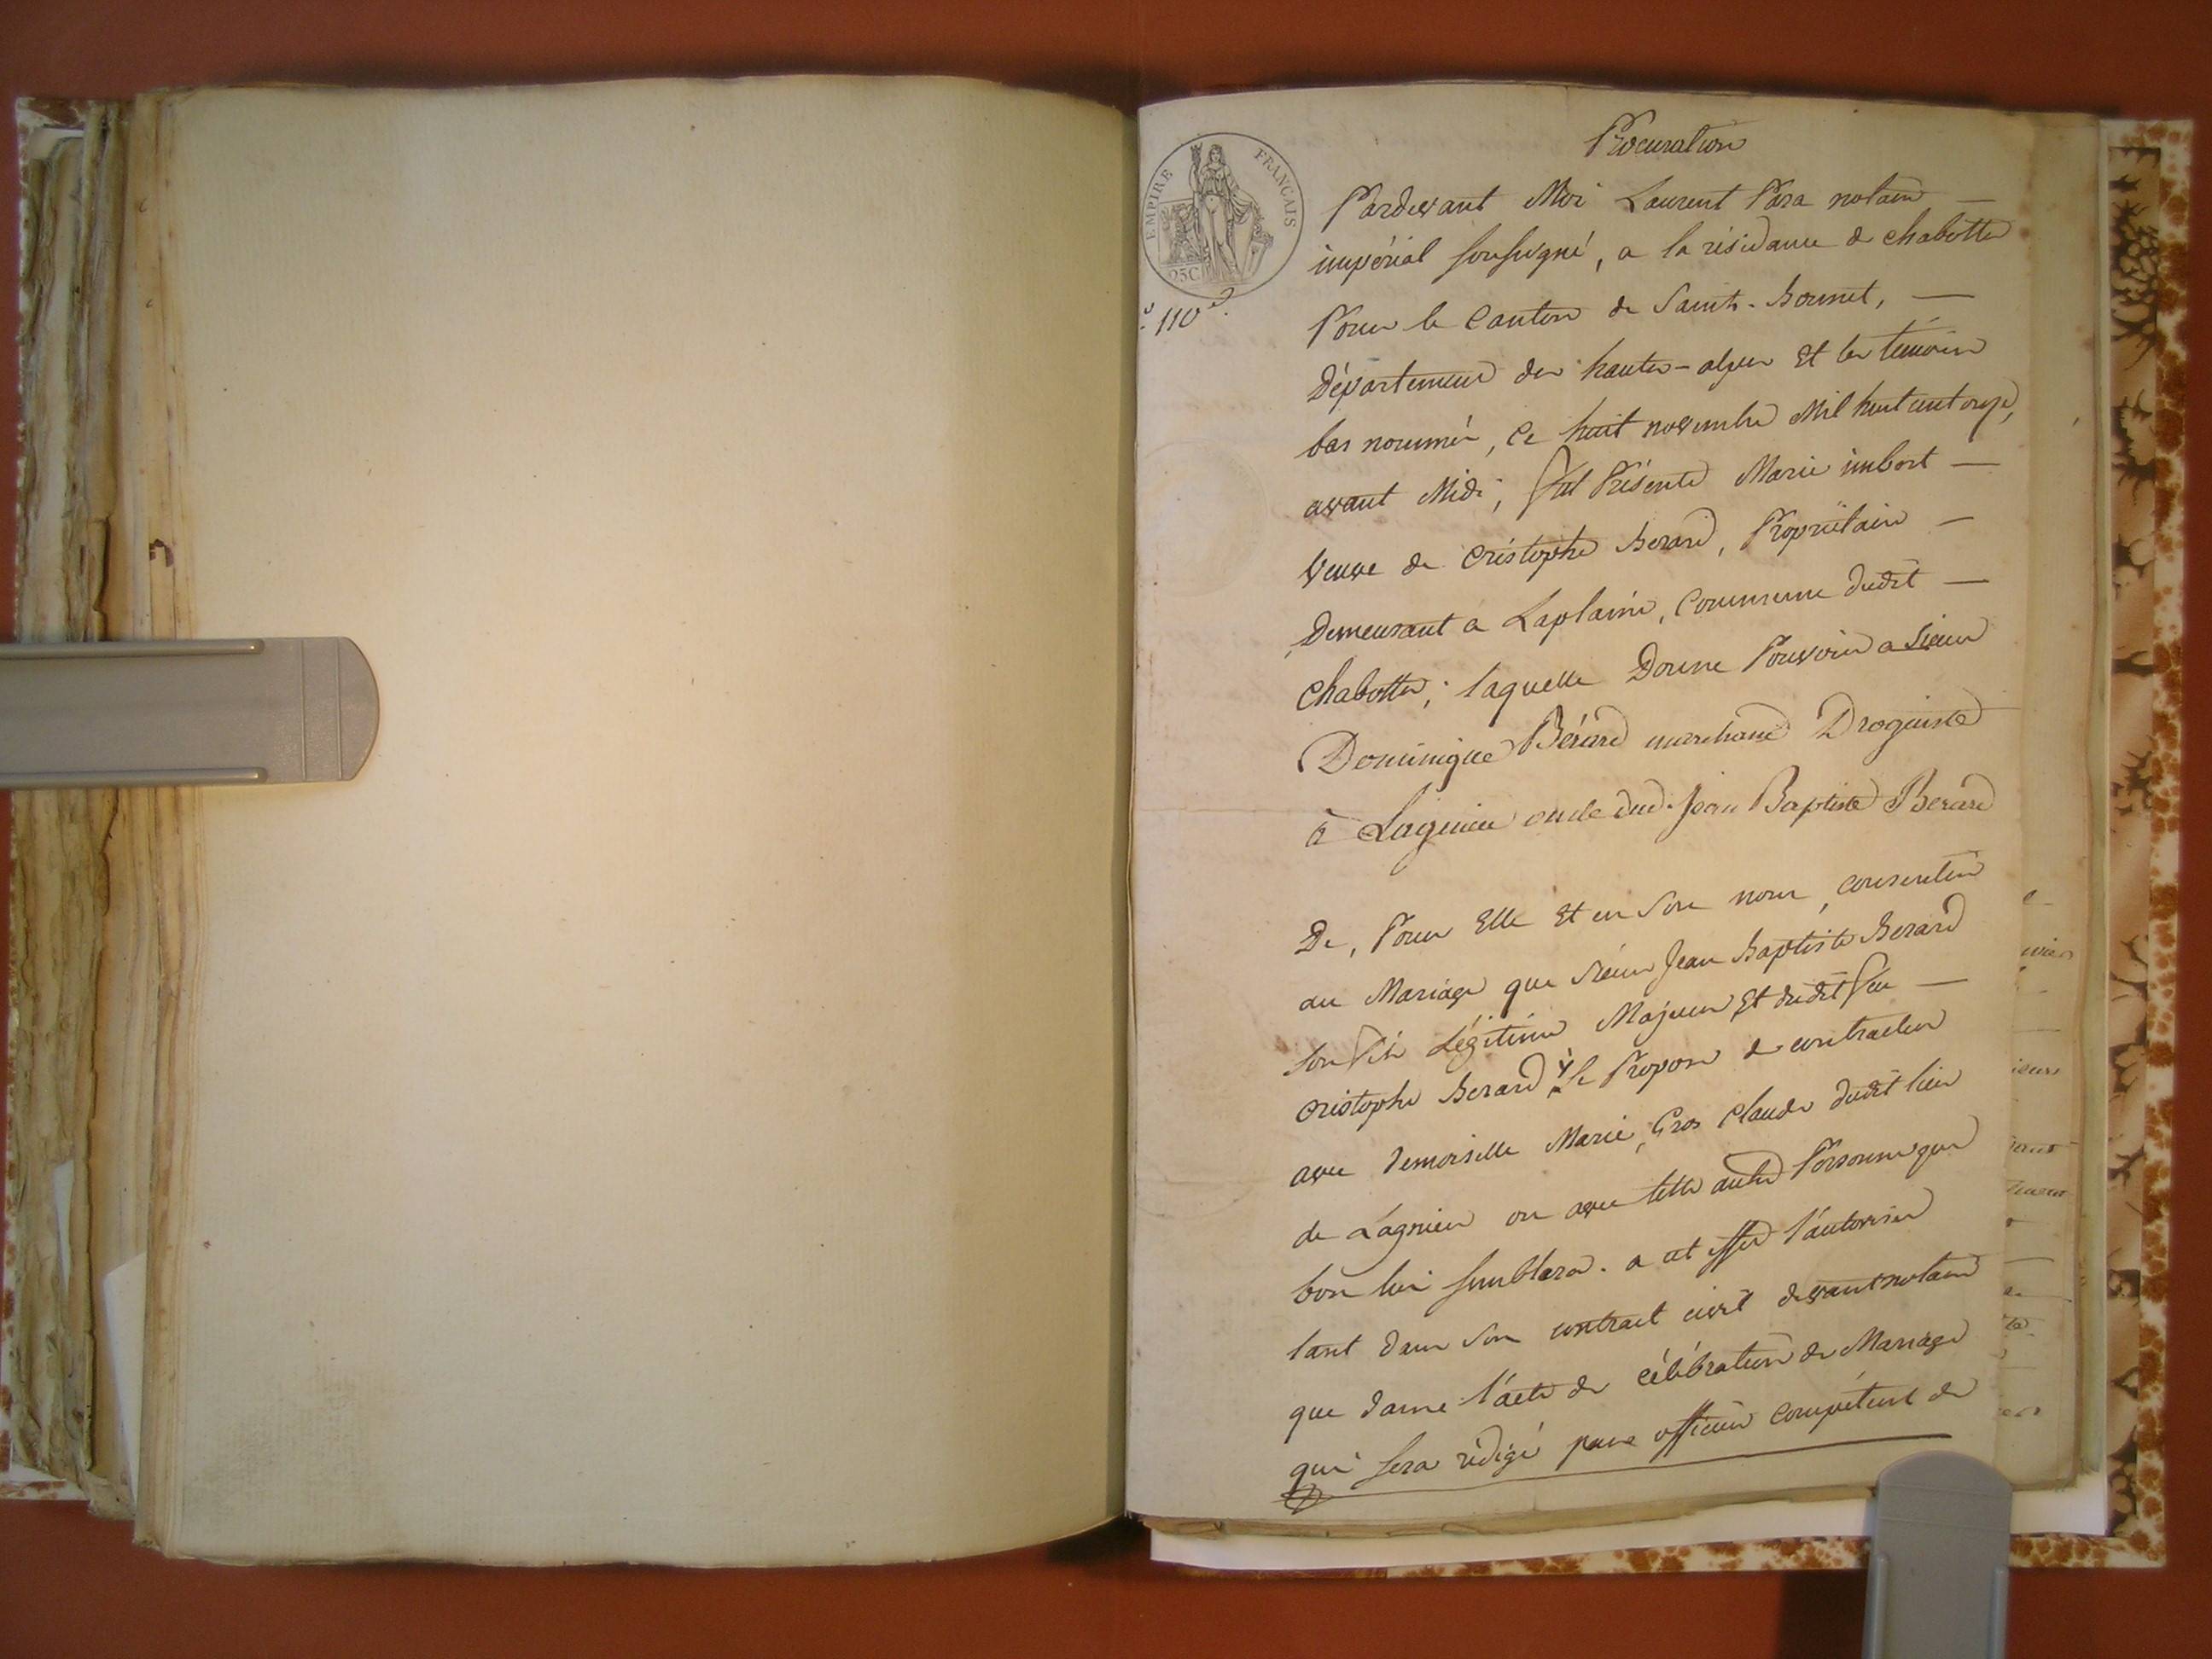 Procuration
EMPIRE FRANÇAIS
25C
110
Pardevant Moi Laurent Para notaire
impérial soussigné, a la résidance de chabottes
Pour le Canton de Saint-Bonnet,
Département des hautes-alpes Et les témoins
bas nommés, Ce huit novembre Mil huit cent onze,
avant Midi; fut Présente Marie imbert
Veuve de Cristophe Berard, Propriétaire
Demeurant a Laplaine, Commune dudit
Chabottes; laquelle Donne Pouvoir a Sieur
Dominique Bérard marchand Droguiste
à Lagnieu oncle dud. Jean Baptiste Berard
De, Pour Elle Et en Son nom, consentir
au Mariage que Sieur Jean Baptiste Berard
son fils Légitime Majeur Et dudit feu
Cristophe Berard Se Propose de contracter
avec Demoiselle Marie Gros Claude dudit lieu
de Lagnieu ou avec telle autre Personne que
bon lui semblera. a cet effet l'autoriser
tant dans Son contract civil devant notaire
que dans l'acte de célébration de Mariage
qui sera rédigé par officier compétent de